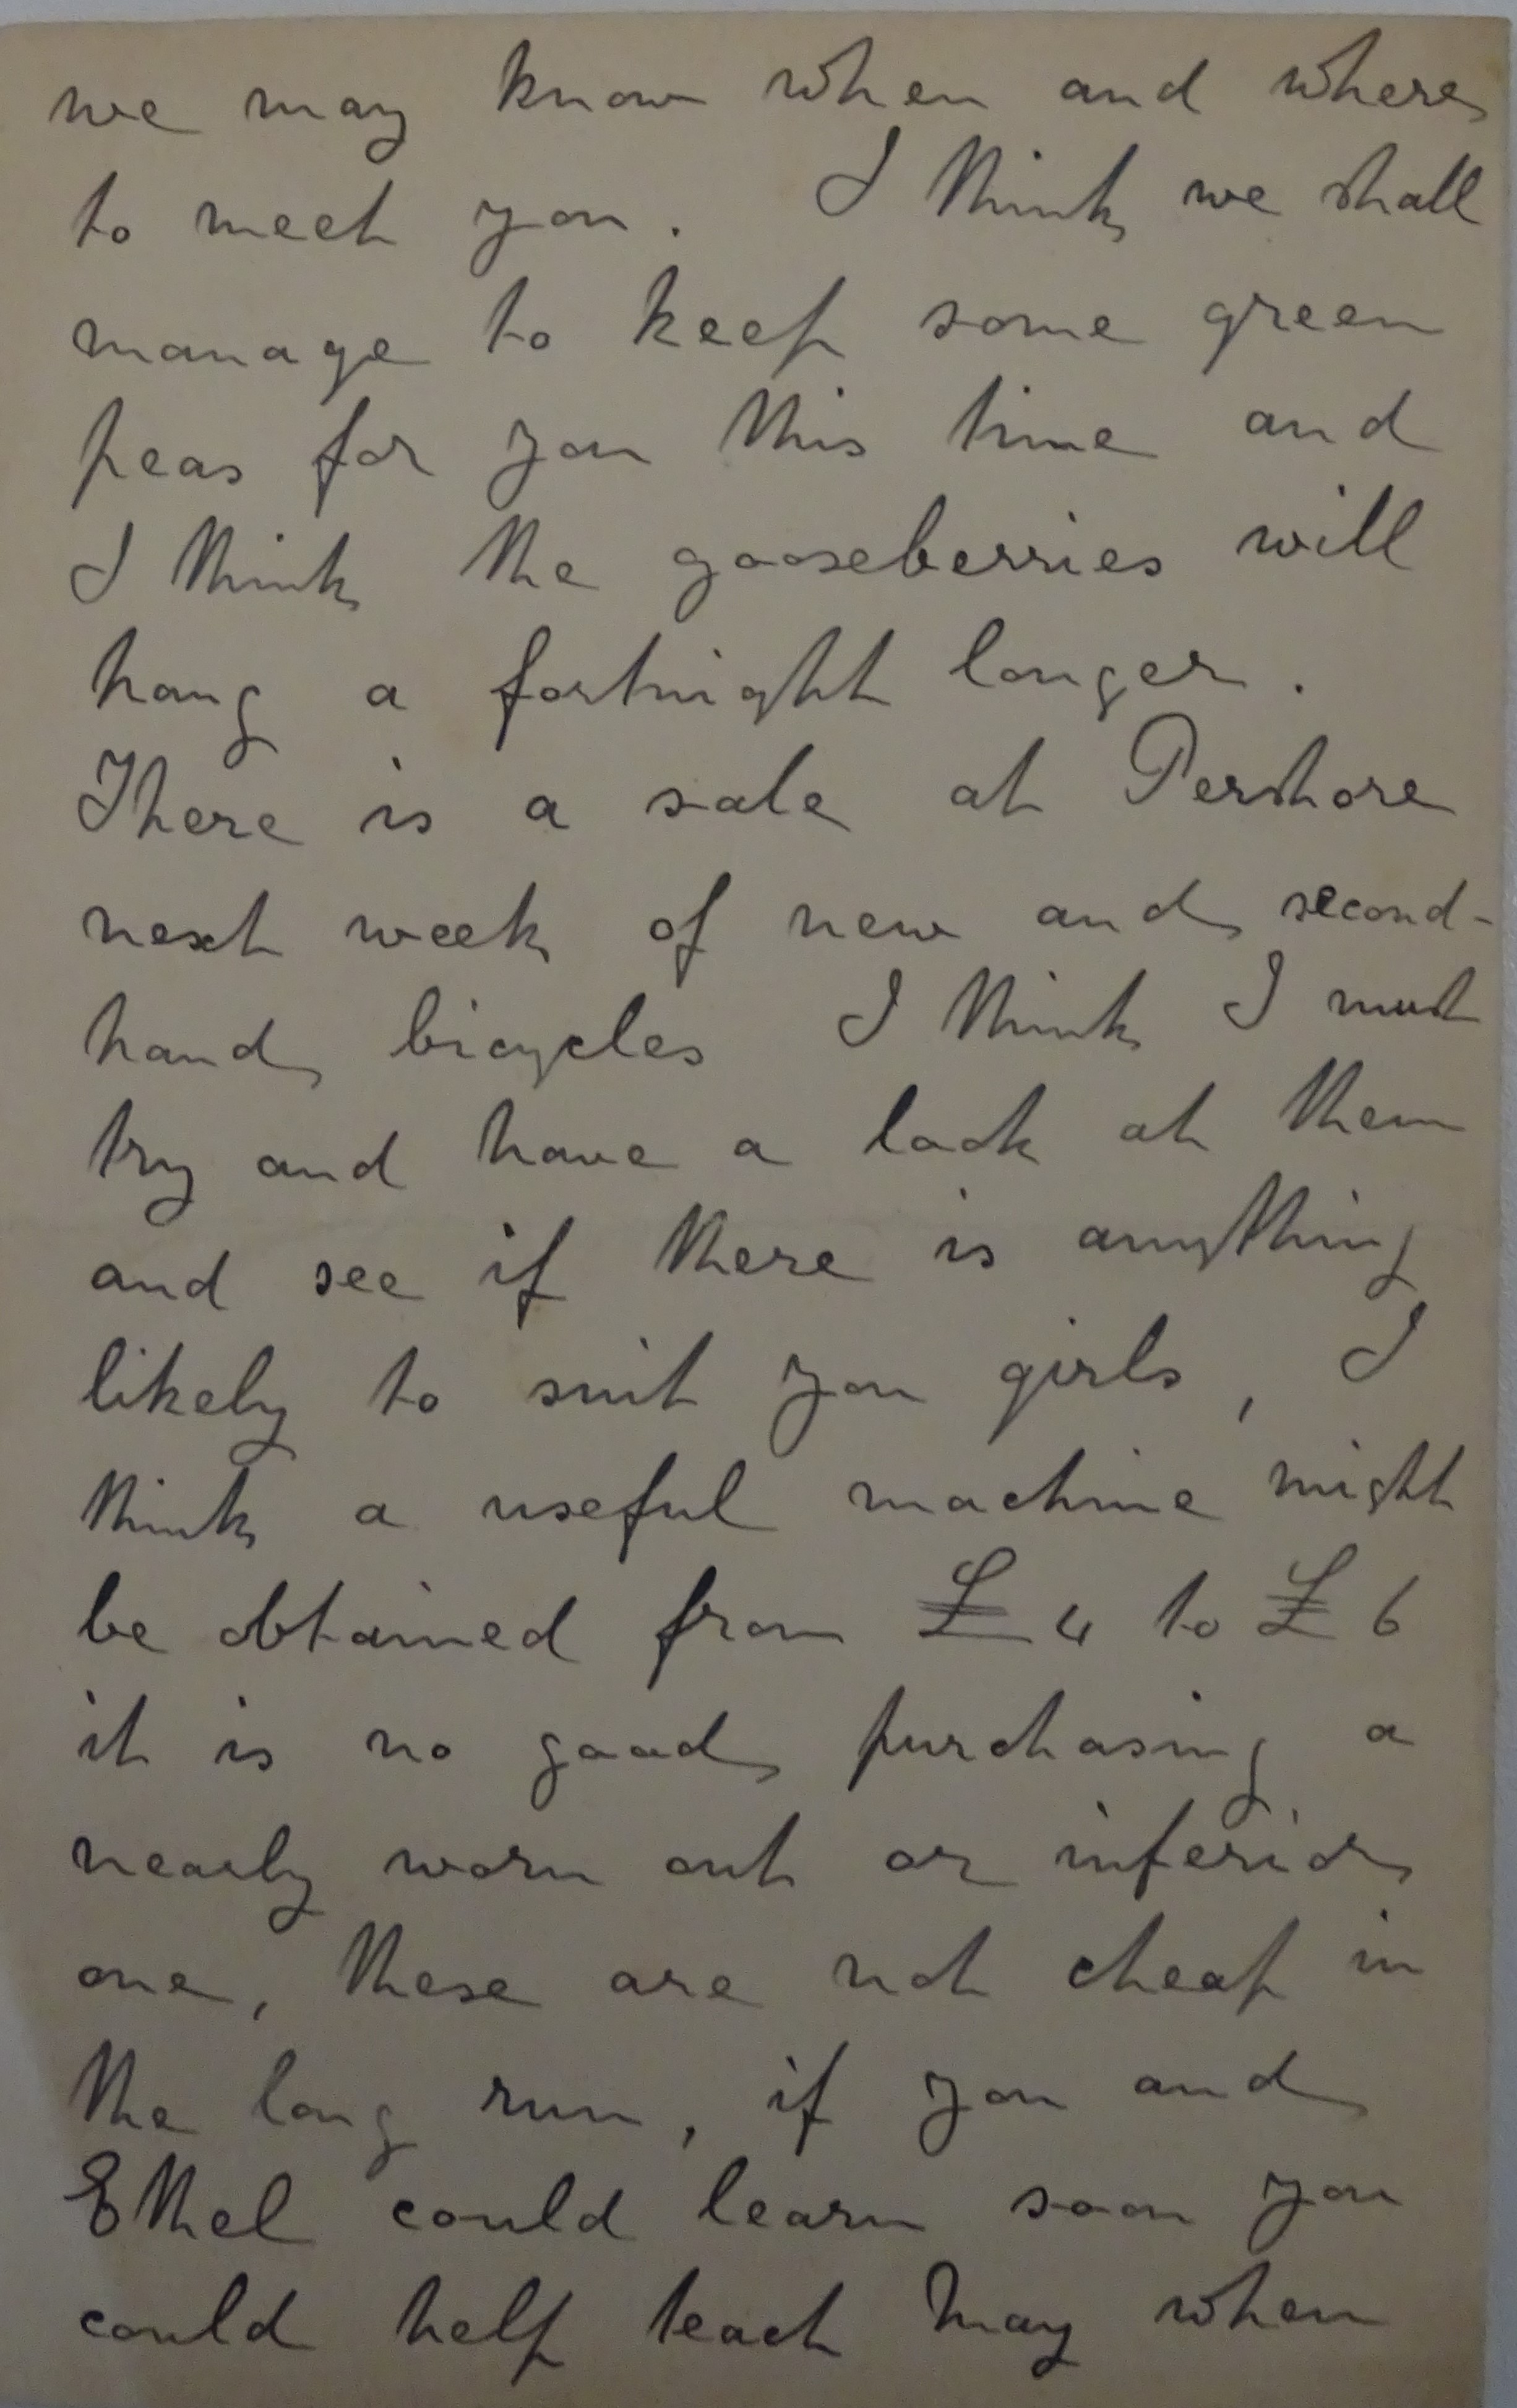 we may know when and where
to meet you. I think we shall
manage to keep some green
peas for you this time and
I think the gooseberries will
hang a fortnight longer.
There is a sale at Pershore
next week of new and second-
hand bicycles I think I must
try and have a look at them
and see if there is anything
likely to suit you girls, I
think a useful machine might
be obtained from £4 to £6
it is no good purchasing a
nearly worn out or inferior
one, these are not cheap in
the long run, if you and
Ethel could learn soon you
could help teach May when